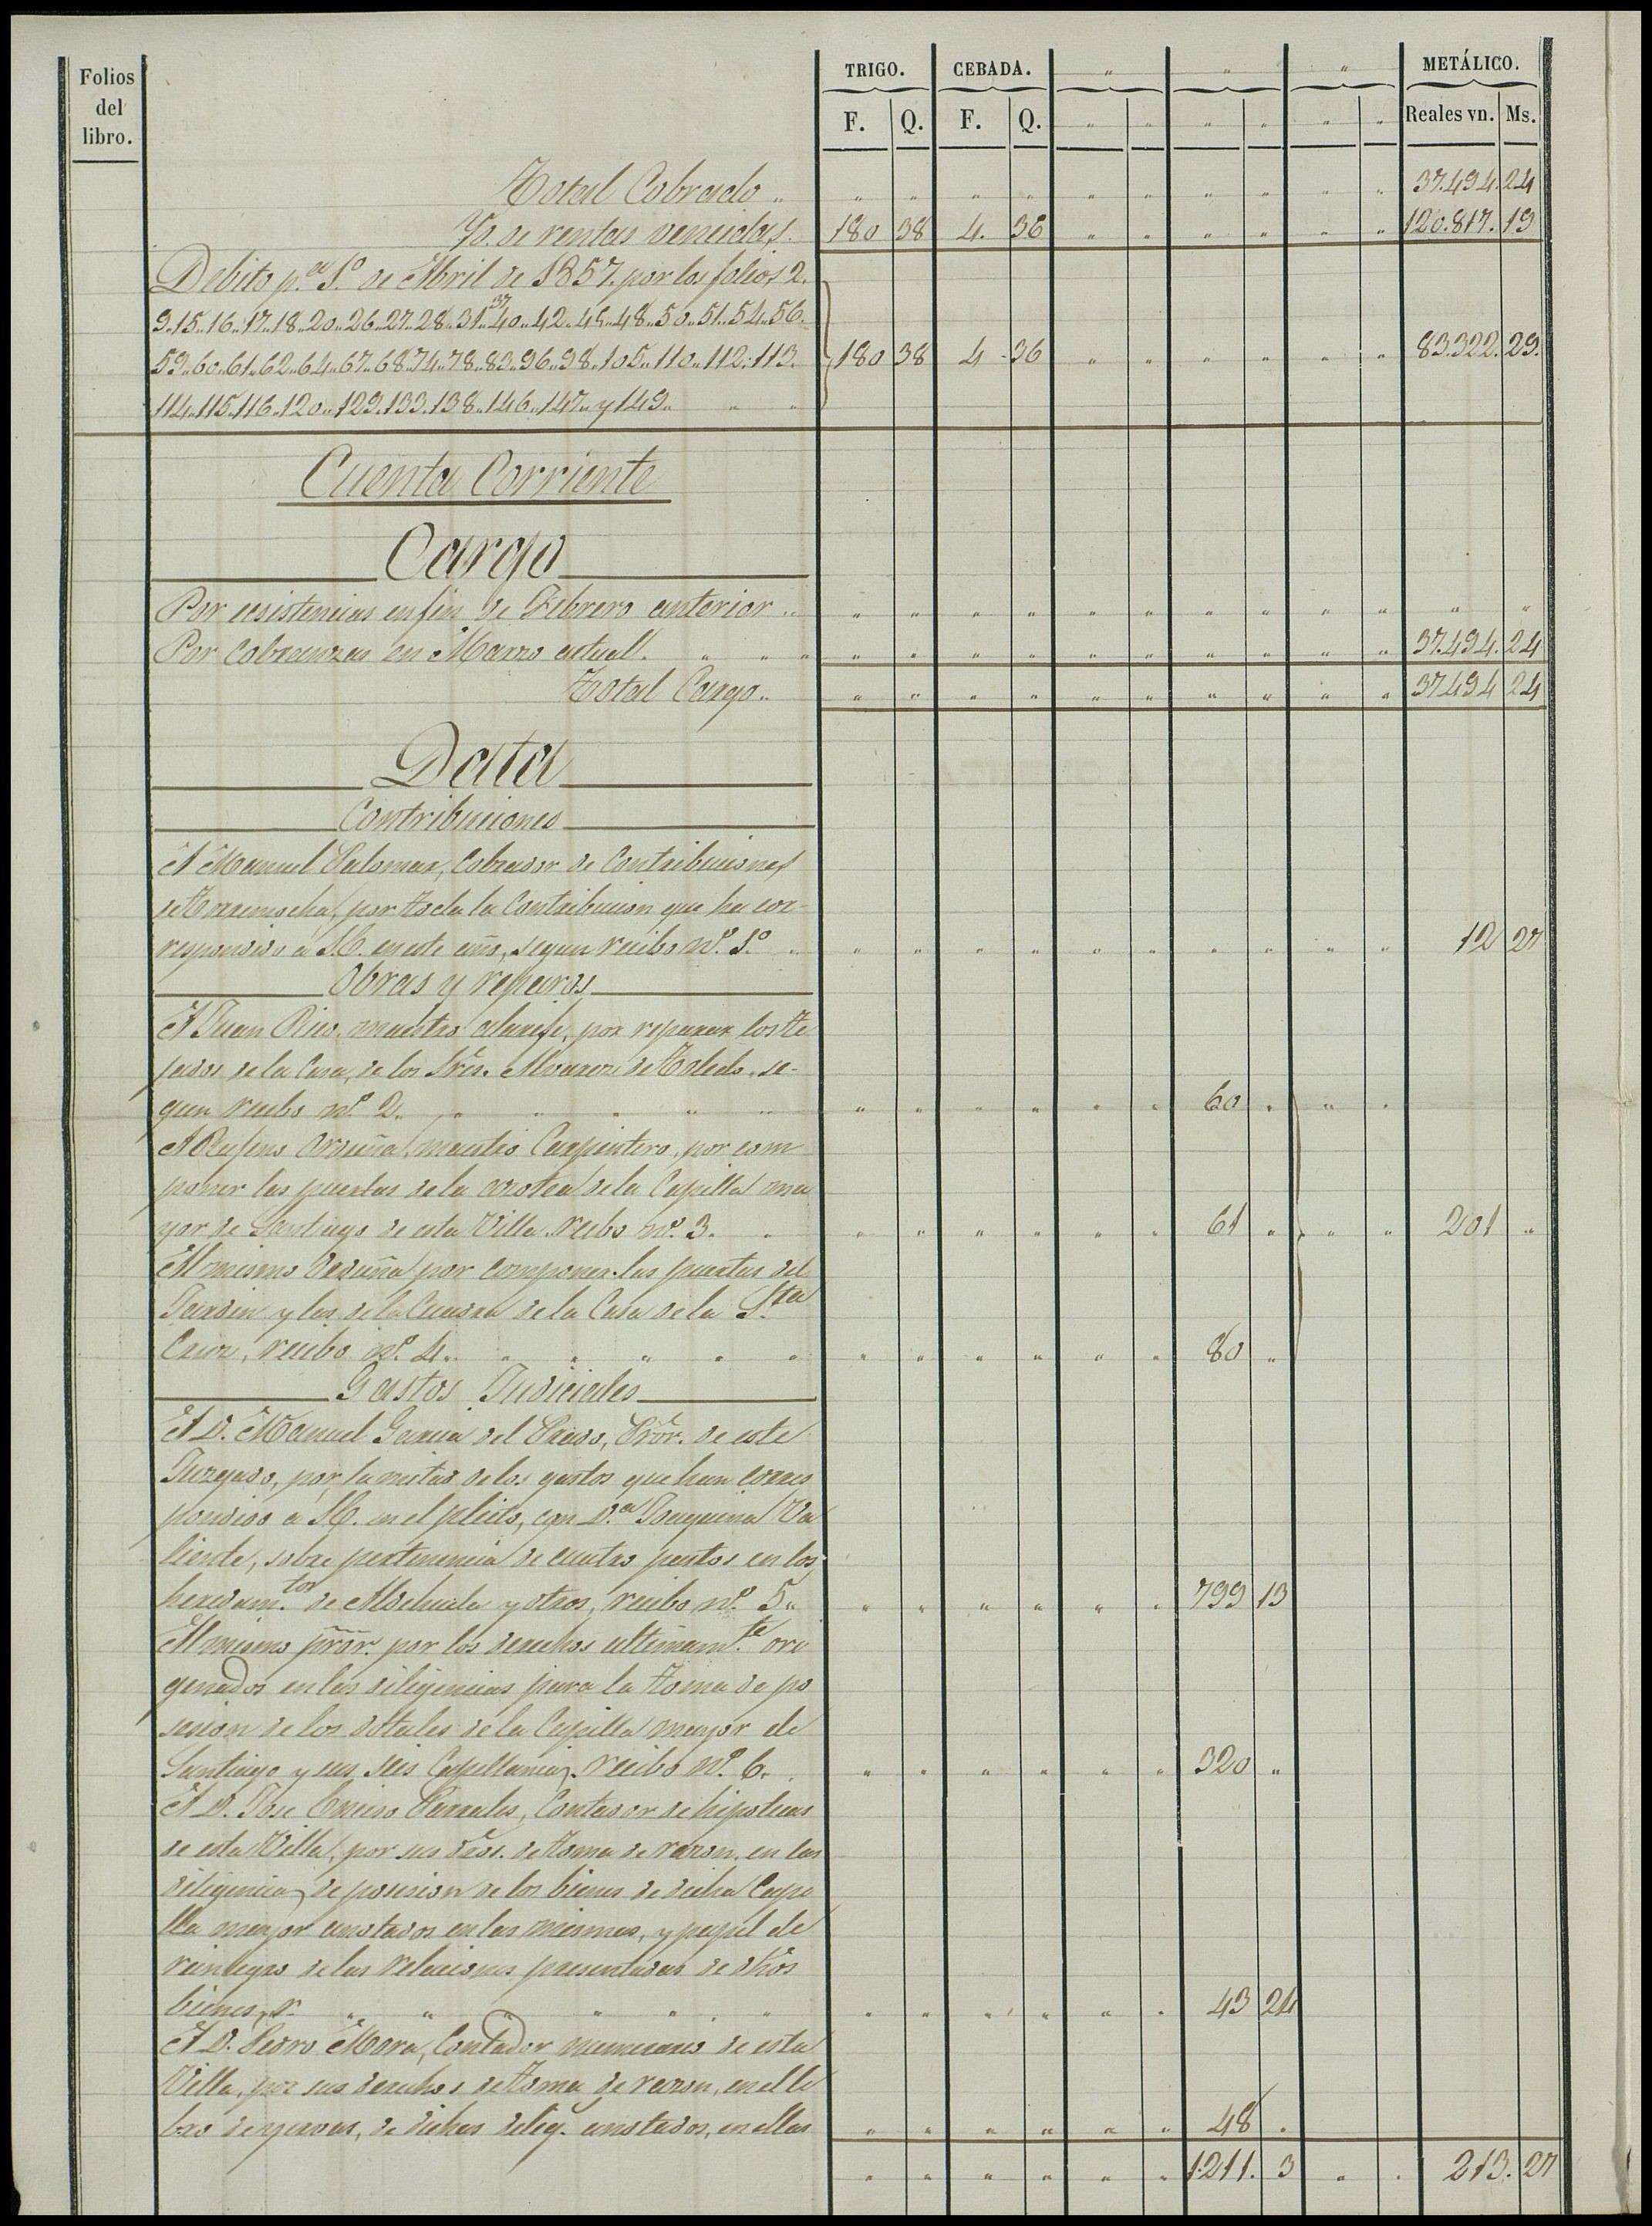 Folios del libro. TRIGO. CEBADA. " " " METÁLICO.
F. Q. F. Q. " " " " " " Reales vn. Ms.
Total Cobrado " " " " " " " " " " " 37.494. 24
Yd. de rentas vencidas. 180 38 4. 36 " " " " " " 120.817. 19
Debito p.a 1.o de Abril de 1857. por los folios 2.
9.. 15.. 16.. 17.. 18.. 20.. 26.. 27.. 28.. 31.. 37 40.. 42.. 45.. 48.. 50.. 51.. 54.. 56.
59.. 60.. 61.. 62.. 64.. 67.. 68.. 74.. 78.. 83.. 96.. 98.. 105.. 110.. 112.. 113. 180 38 4 - 36 " " " " " " 83.322. 29.
114.. 115. 116.. 120.. 129. 133. 138.. 146.. 147.. y 149.. " "
Cuenta Corriente
Cargo
Por ecsistencias en fin de Febrero anterior .. " " " " " " " " " " " "
Por Cobranzas en Marzo actual. " " " " " " " " " " " " " 37.494. 24
Total Cargo.. " " " " " " " " " " 37.494 24
Data
Contribuciones
A Manuel Palomar, Cobrador de Contribuciones
de Torremocha, por toda la Contribucion que ha cor-
respondido á S.E. en este año, segun recibo N.o 1.o " " " " " " " " " " " 12 27
Obras y reparos
A Juan Rico, maestro alarife, por reparar los te
jados de la Casa, de los Sres. Alvarez de Toledo, se-
gun recibo n.o 2. " " " " " " " " " " " 60 " " "
A Rufino Orduña, maestro Carpintero, por com
poner las puertas de la azotea de la Capilla ma
yor de Santiago de esta Villa. recibo n.o 3. " " " " " " " 61 " " " 201 "
Al mismo Orduña por componer las puertas del
Jardin y las de la Cuadra de la Casa de la S.ta
Cruz, recibo n.o 4.. " " " " " " " " " " " 80 "
Gastos Judiciales
A D. Manuel Garcia del Prado, Pror. de este
Juzgado, por la mitad de los gastos que han corres
pondido á S.E. en el pleito, con D.a Joaquina Va
liente, sobre pertinencia de cuatro pastos en los
heredam.tos de Aldehuela y otros, recibo n.o 5.. " " " " " " 799 13
Al mismo pror. por los derechos ultimam.te ori
ginados en las diligencias para la toma de po
sesion de los dotales de la Capilla mayor de
Santiago y sus seis Capellanias. recibo N.o 6. " " " " " " 320 "
A D. Jose Perales, Contador de hipotecas
de esta Villa, por sus dros. de toma de razon. en las
diligencias de posesion de los bienes de dicha Capi
lla mayor anotados en las mismas, y papel de
reintegro de las relaciones presentadas de dhos
bienes, " " " " " " " " " " " " 43 24
A D. Pedro Mora, Contador numerario de esta
Villa, por sus derechos de toma de razon, en el li
bro de yervas, de dichas dilig. anotados, en ellas " " " " " " 48 "
" " " " " " 1.211. 3 " " 213. 27